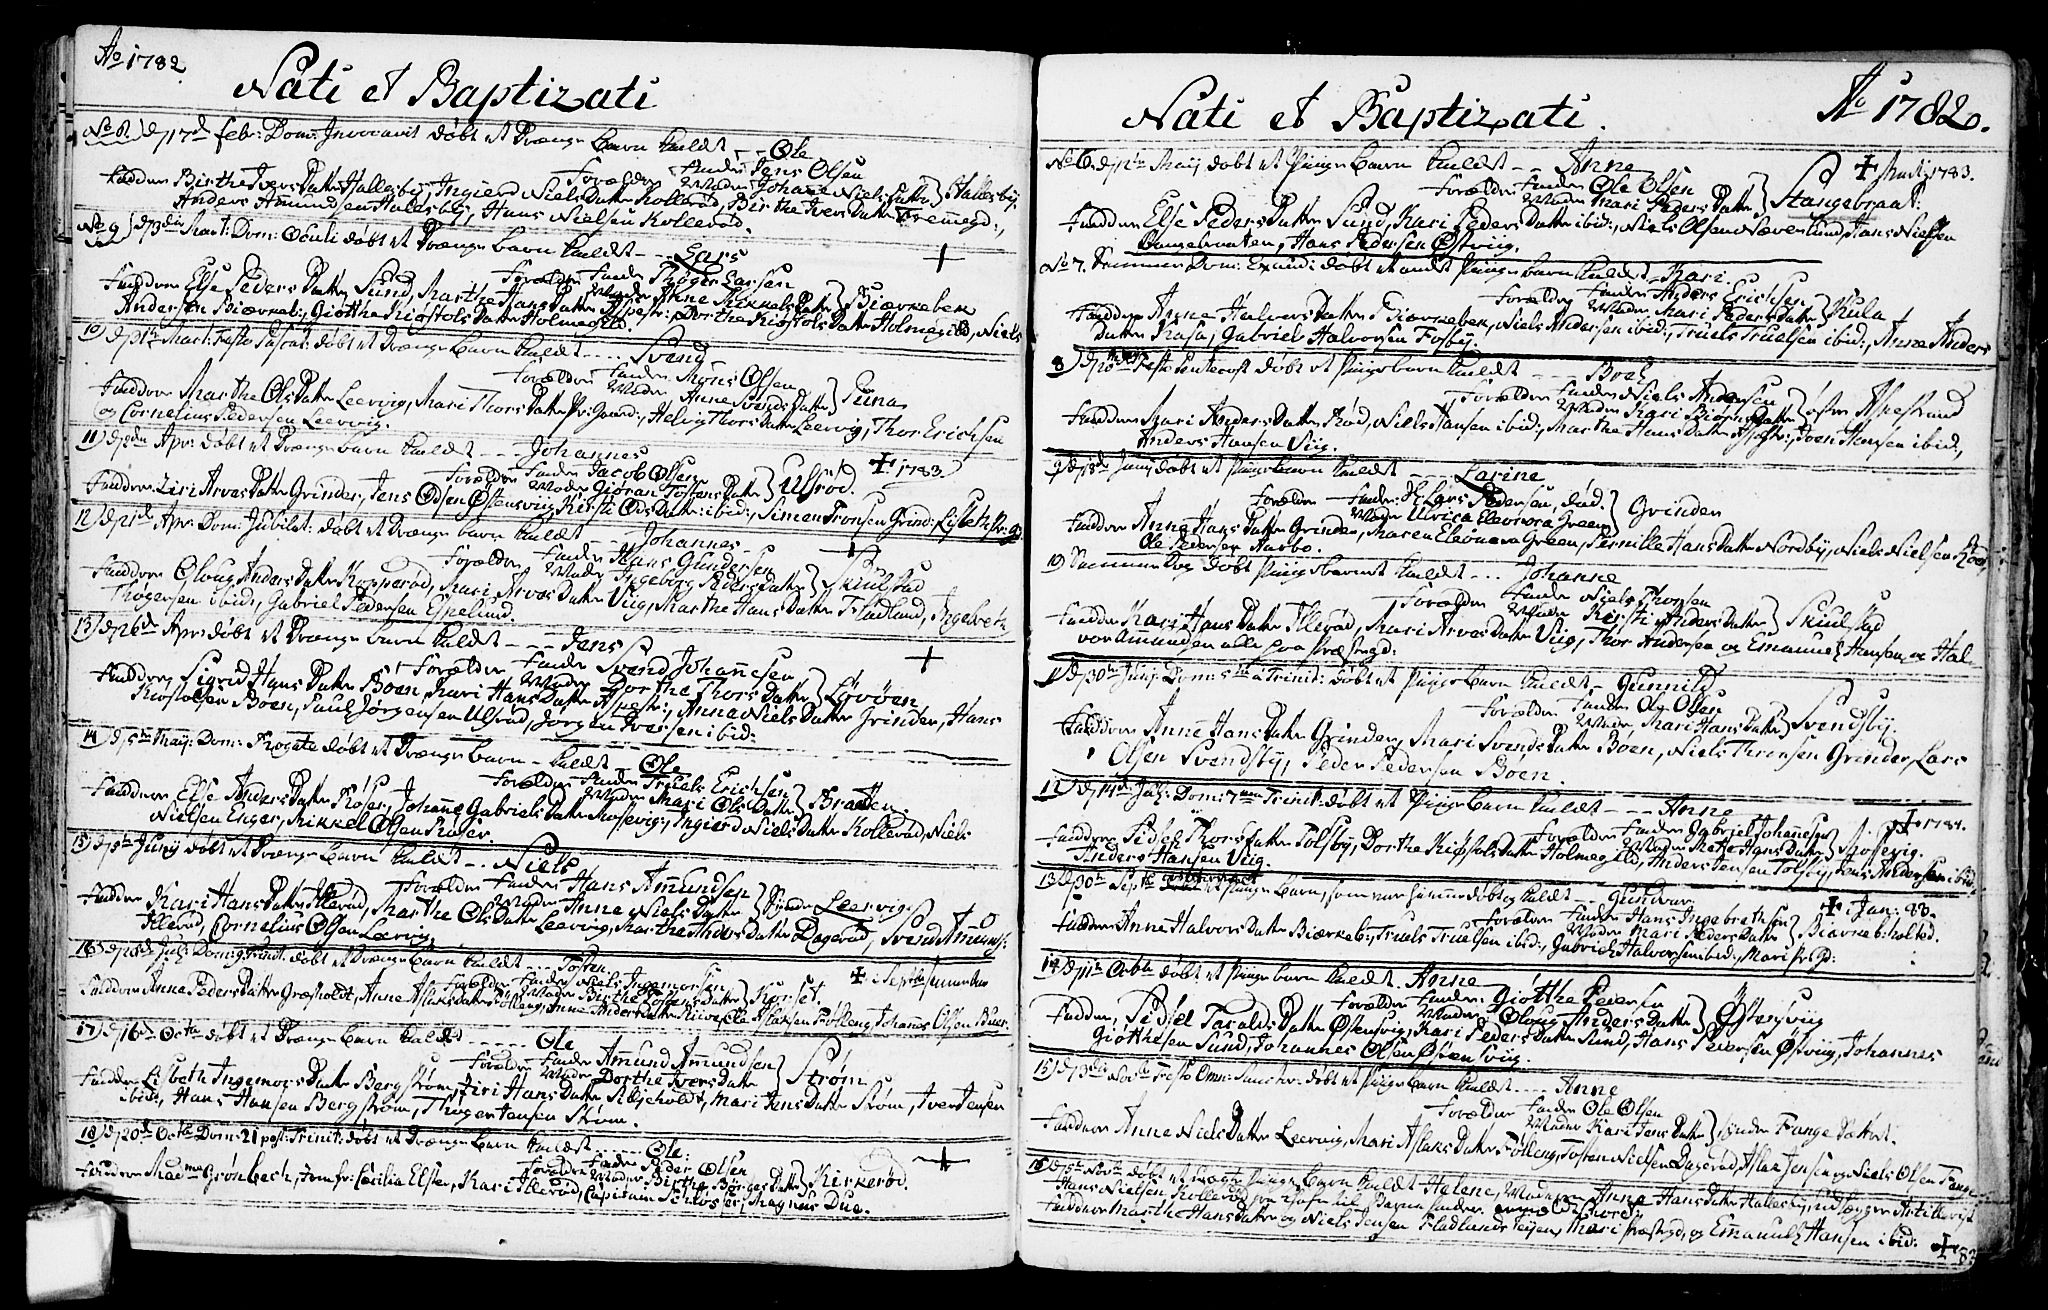 Ao 1782
Nati et Baptizati
No 8.) d 17d febr: Dom: Invocavit døbt et Drænge barn kaldet -- Ole
Forældre Fader Jens Olsen
Moder Johane Niels Datter } Hallesby,
Faddere Birthe Ivers Datter Hallesby, Ingierd Niels Datter Kollerød, Birthe Ivers Datter
Anders Amundsen Halesby, Hans Nielsen Kollerød.
No 9) d 3die Mart: Dom: Oculi døbt et Drænge barn kaldet -- Lars +
Forældre Fader Thøger Larsen
Moder Anne Mikkels Datter } Biærkebek
Faddere Else Peders Datter Sund, Marthe Hans Datter Alpestr:, Dorthe Kiøstols Datter Holmegild, Niels
Andersen Biærkeb:, Giøthe Kiøstols Datter Holmegild
10) d 31te Mart: Festo Pascat: døbt et Drænge barn kaldet ---- Svend
Forældre Fader Mons Olsen
Moder Anne Svends Datter }
Faddere Marthe Ols Datter Leervig, Mari Thors Datter Pr: Gaard:, Helvig Thors Datter Leervig, Thor Erichsen
og Cornelius Pedersen Leervig.
11) d 2den Apr: døbt et Drænge barn kaldet --- Johannes + 1783.
Forældre Fader Jacob Olsen
Moder Gioran Tostens Datter } Ulfrød.
Faddere: Siri Arvas Datter Grinder, Jens Odsen Østensviig, Kirsti Ods Datter: ibid:, Simen Tronsen Grind:, Lisbeth Pr: g:
12) d 21de Apr: Dom: Jubilat: døbt et Drænge barn kaldet --- Johannes
Forældre Fader Hans Gundersen
Moder Ingeborg Peders Datter } Skiulstad
Faddere Oloug Anders Datter Kopperød, Mari Arvas Datter Viig, Marthe Hans Datter Fladlund, Ingebreth
Thøgersen ibid, Gabriel Pedersen Espelund.
13) d 26de Apr: døbt et Drænge barn kaldet --- Jens +
Forældre Fader Svend Johannesen
Moder Dorthe Thors Datter } Løvøen
Faddere Sigrid Hans Datter Boen, Mari Hans Datter Alpestr:, Anna Niels Datter Grinder, Hans
Kiostolsen Boen, Paul Jørgensen Ulfrød, Jørgen Iversen ibid:
14) d 5te Maij: Dom: Rogate døbt et Drænge barn - kaldet - Ole
Forældre Fader Truels Erichsen
Moder Mari Ols Datter } Braaten
Faddere Else Anders Datter Røser, Johanne Gabriels Datter Rossevig:, Ingierd Niels Datter Kollerød, Niels
Nielsen Enger, Mikkel Olsen Røser.
15) d 5te Junij døbt et Drænge barn kaldet -- Niels
Forældre Fader Hans Amundsen
Moder Anne Niels Datter } Synder Leervig
Faddere Kari Hans Datter Illerød, Marthe Ols Datter Leervig, Marthe Anders Datter Dagerød, Svend Amunds:
Illerød, Cornelius Olsen Leervig
16) d 28de Julj: Dom: 9 Trinit: døbt et Drænge barn kaldet --- Tosten + i Septbr: nemmedus
Forældre Fader Niels Ingemorsen
Moder Birthe Tostens Datter } Korset.
Faddere Anna Peders Datter Græsholdt, Anne Aslaks Datter Følleng, Anne Anders Datter Kiive, Ole Aslaksen Følleng, Johannes Olsen Buer.
17) d 16de Octbr døbt et Drænge barn kaldet ----- Ole
Forældre Fader Amund Amundsen
Moder Dorthe Ivers Datter } Strøm
Faddere Lisbeth Ingemors Datter Bergstrøm, Siri Hans Datter Skieholdt, Mari Jens Datter Strøm, Iver Jensen
ibid:, Hans Hansen Bergstrøm, Thøger Jensen Strøm.
18) d 20de Octbr Dom: 21 post: Trinit: døbt et Drænge barn kaldet ---- Ole: +
Forældre Fader Peder Olsen
Moder Birthe Børges Datter } Kirkerød.
Faddere Madme Grønbech, Jomfr: Cecilia Elster, Kari Illerød, Capitain Schløsser, Magnus Due.
Nati et Baptizati.
Ao 1782.
No 6. d 12te Maij døbt et Piige barn kaldet --- Anne + Martj 1783.
Forældre Fader Ole Olsen
Moder Mari Peders Datter } Stangebraat:
Faddere Else Peders Datter Sund, Kari Peders Datter ibid:, Niels Olsen Nævenlund, Hans Nielsen
Stangebraaten, Hans Pedersen Østviig.
No 7. Sammer Dom: Exaudi døbt et andet Piige barn kaldet - Kari.
Forældre Fader Anders Erichsen
Moder Mari Peders Datter } Kula
Faddere Anne Halvors Datter Biærkebek, Niels Andersen ibid:, Truels Truelsen ibid:, Anne Anders
Datter Rasa, Gabriel Halvorsen Fosby.
8) d 20de Maij Festo Pentecost døbt et Piige barn kaldet --- Boel
Forældre Fader Niels Andersen
Moder Kari Biørns Datter } Øster Alpestrand
Faddere Mari Anders Datter Rød, Niels Hansen ibid:, Marthe Hans Datter Alpestr:, Svend Hansen ibid:,
Anders Hansen Viig.
9) d 13de Junij døbt et Piige barn kaldet --- Larine
Forældre Fader: Hr Lars Pedersen, død.
Moder Ulrica Eleonora Green } Grinder
Faddere Anne Hans Datter Grinder, Maren Eleonora Green, Pernille Hans Datter Nordby, Niels Nielsen
Ole Pedersen Aarbo.
10) Samme Dag døbt Piige barnet kaldet --- Johanne
Forældre Fader Niels Thorsen
Moder Kirsti Anders Datter } Skiulstad
Faddere Kari Hans Datter Illerød, Mari Arvas Datter Viig, Thor Andersen og Emanuel Hansen og Hal-
vor Amundsen alle paa Præstegd:
11) d 30te Junij: Dom: 5te a Trinit: døbt et Piige barn kaldet - Gunnild
Forældre Fader Ole Olsen
Moder Mari Hans Datter } Svendsby.
Faddere Anne Hans Datter Grinder, Mari Svends Datter Boen, Niels Thronsen Grinder, Lars
Olsen Svendsby, Peder Pedersen Bøen.
12) d 14de Julj: Dom: 7ma Trinit: døbt et Piige barn kaldet --- Anne + 1784.
Forældre Fader Gabriel Johannesen
Moder Mette Hans Datter } Rossevig.
Faddere Sidsel Thors Datter Tolsby, Dorthe Kiøstols Datter Holmegild, Anders Jensen Tolsby, Jens Andersen ibid:
Anders Hansen Viig.
13) d 30te Septbr et Piige barn, som var hiemmedøbt og kaldet --- Gundvor + i Jan: 83.
Forældre Fader Hans Ingebrethsen
Moder Mari Peders Datter } Biærkeb:holted.
Faddere Anne Halvors Datter Biærkeb:, Truels Truelsen ibid:, Gabriel Halvorsen ibid:, Mari Pr: gd:
14) d 11te Octbr døbt et Piige barn kaldet Anne
Forældre Fader: Giøtthe Peiersen
Moder: Oloug Anders Datter } Østensviig
Faddere, Sidsel Taralds Datter Østensvig, Kari Peders Datter Sund, Hans Pedersen Østviig, Johannes
Giøtthesen Sund, Johannes Olsen Østensviig.
15) d 3die Novbr Festo Omn: Sanctor: døbt et Piige barn kaldet ---- Anne
Forældre Fader Ole Olsen
Moder Kari Jens Datter } Synder Fange
Faddere Anne Niels Datter Leervig, Mari Aslaks Datter Følleng, Tosten Nielsen Dagerød, Aslak Jensen og Niels Olsen Fange
16) d 5te Novbr døbt et uægte Piige barn kaldet Helene, Moderen Anne Hans Datter Hallesby, udlægger Artillerist
Hans Nielsen Kollerød
Faddere Marthe Hans Datter og Niels Jensen Fladlunds Eijen, Mari Præstegd, og Emanuel Hansen ibid: + 83